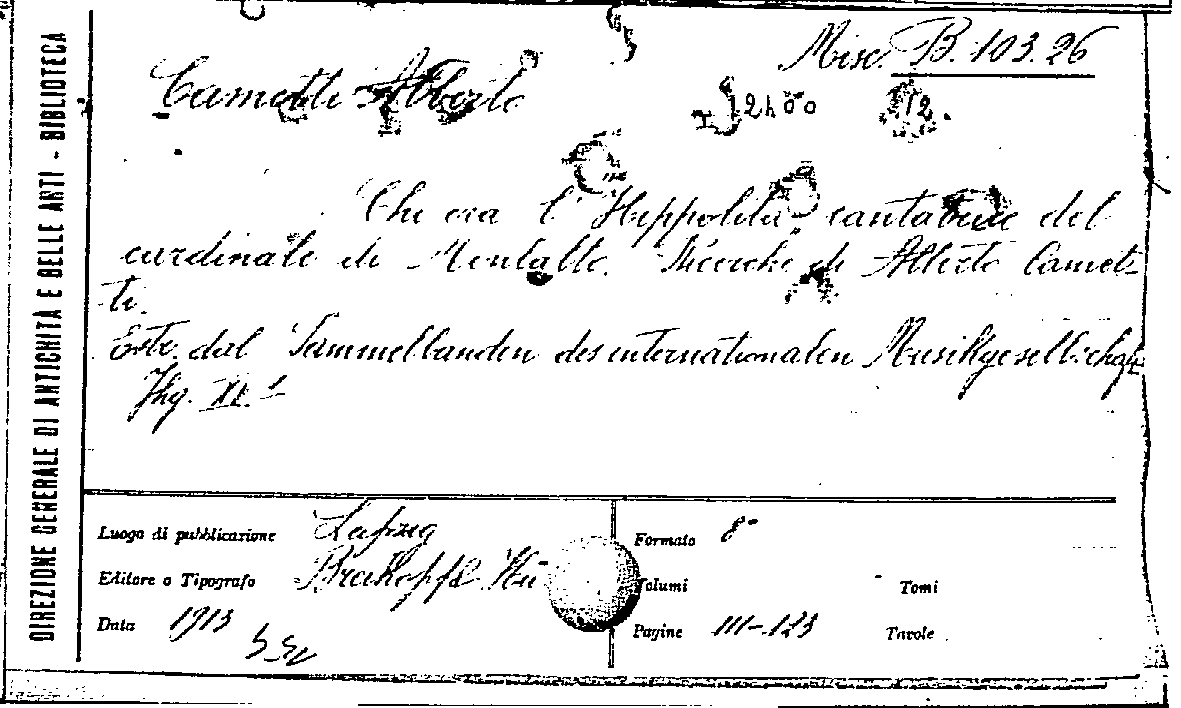 DIREZIONE GENERALE DI ANTICHITÀ E BELLE ARTI - BIBLIOTECA
Misc. B. 103.26
Cametti Alberto
Chi era l'"Hippolita", cantatrice del
cardinale di Montalto. Ricerche di Alberto Camet-
ti.
Estr. dal Sammelbanden des internationalen Musikgesellschaft
Jhg. XV. 1
Luogo di pubblicazione Leipzig
Editore o Tipografo Breitkopf & Hä
Data 1913
Formato 8°
Volumi
Tomi
Pagine 111-123
Tavole